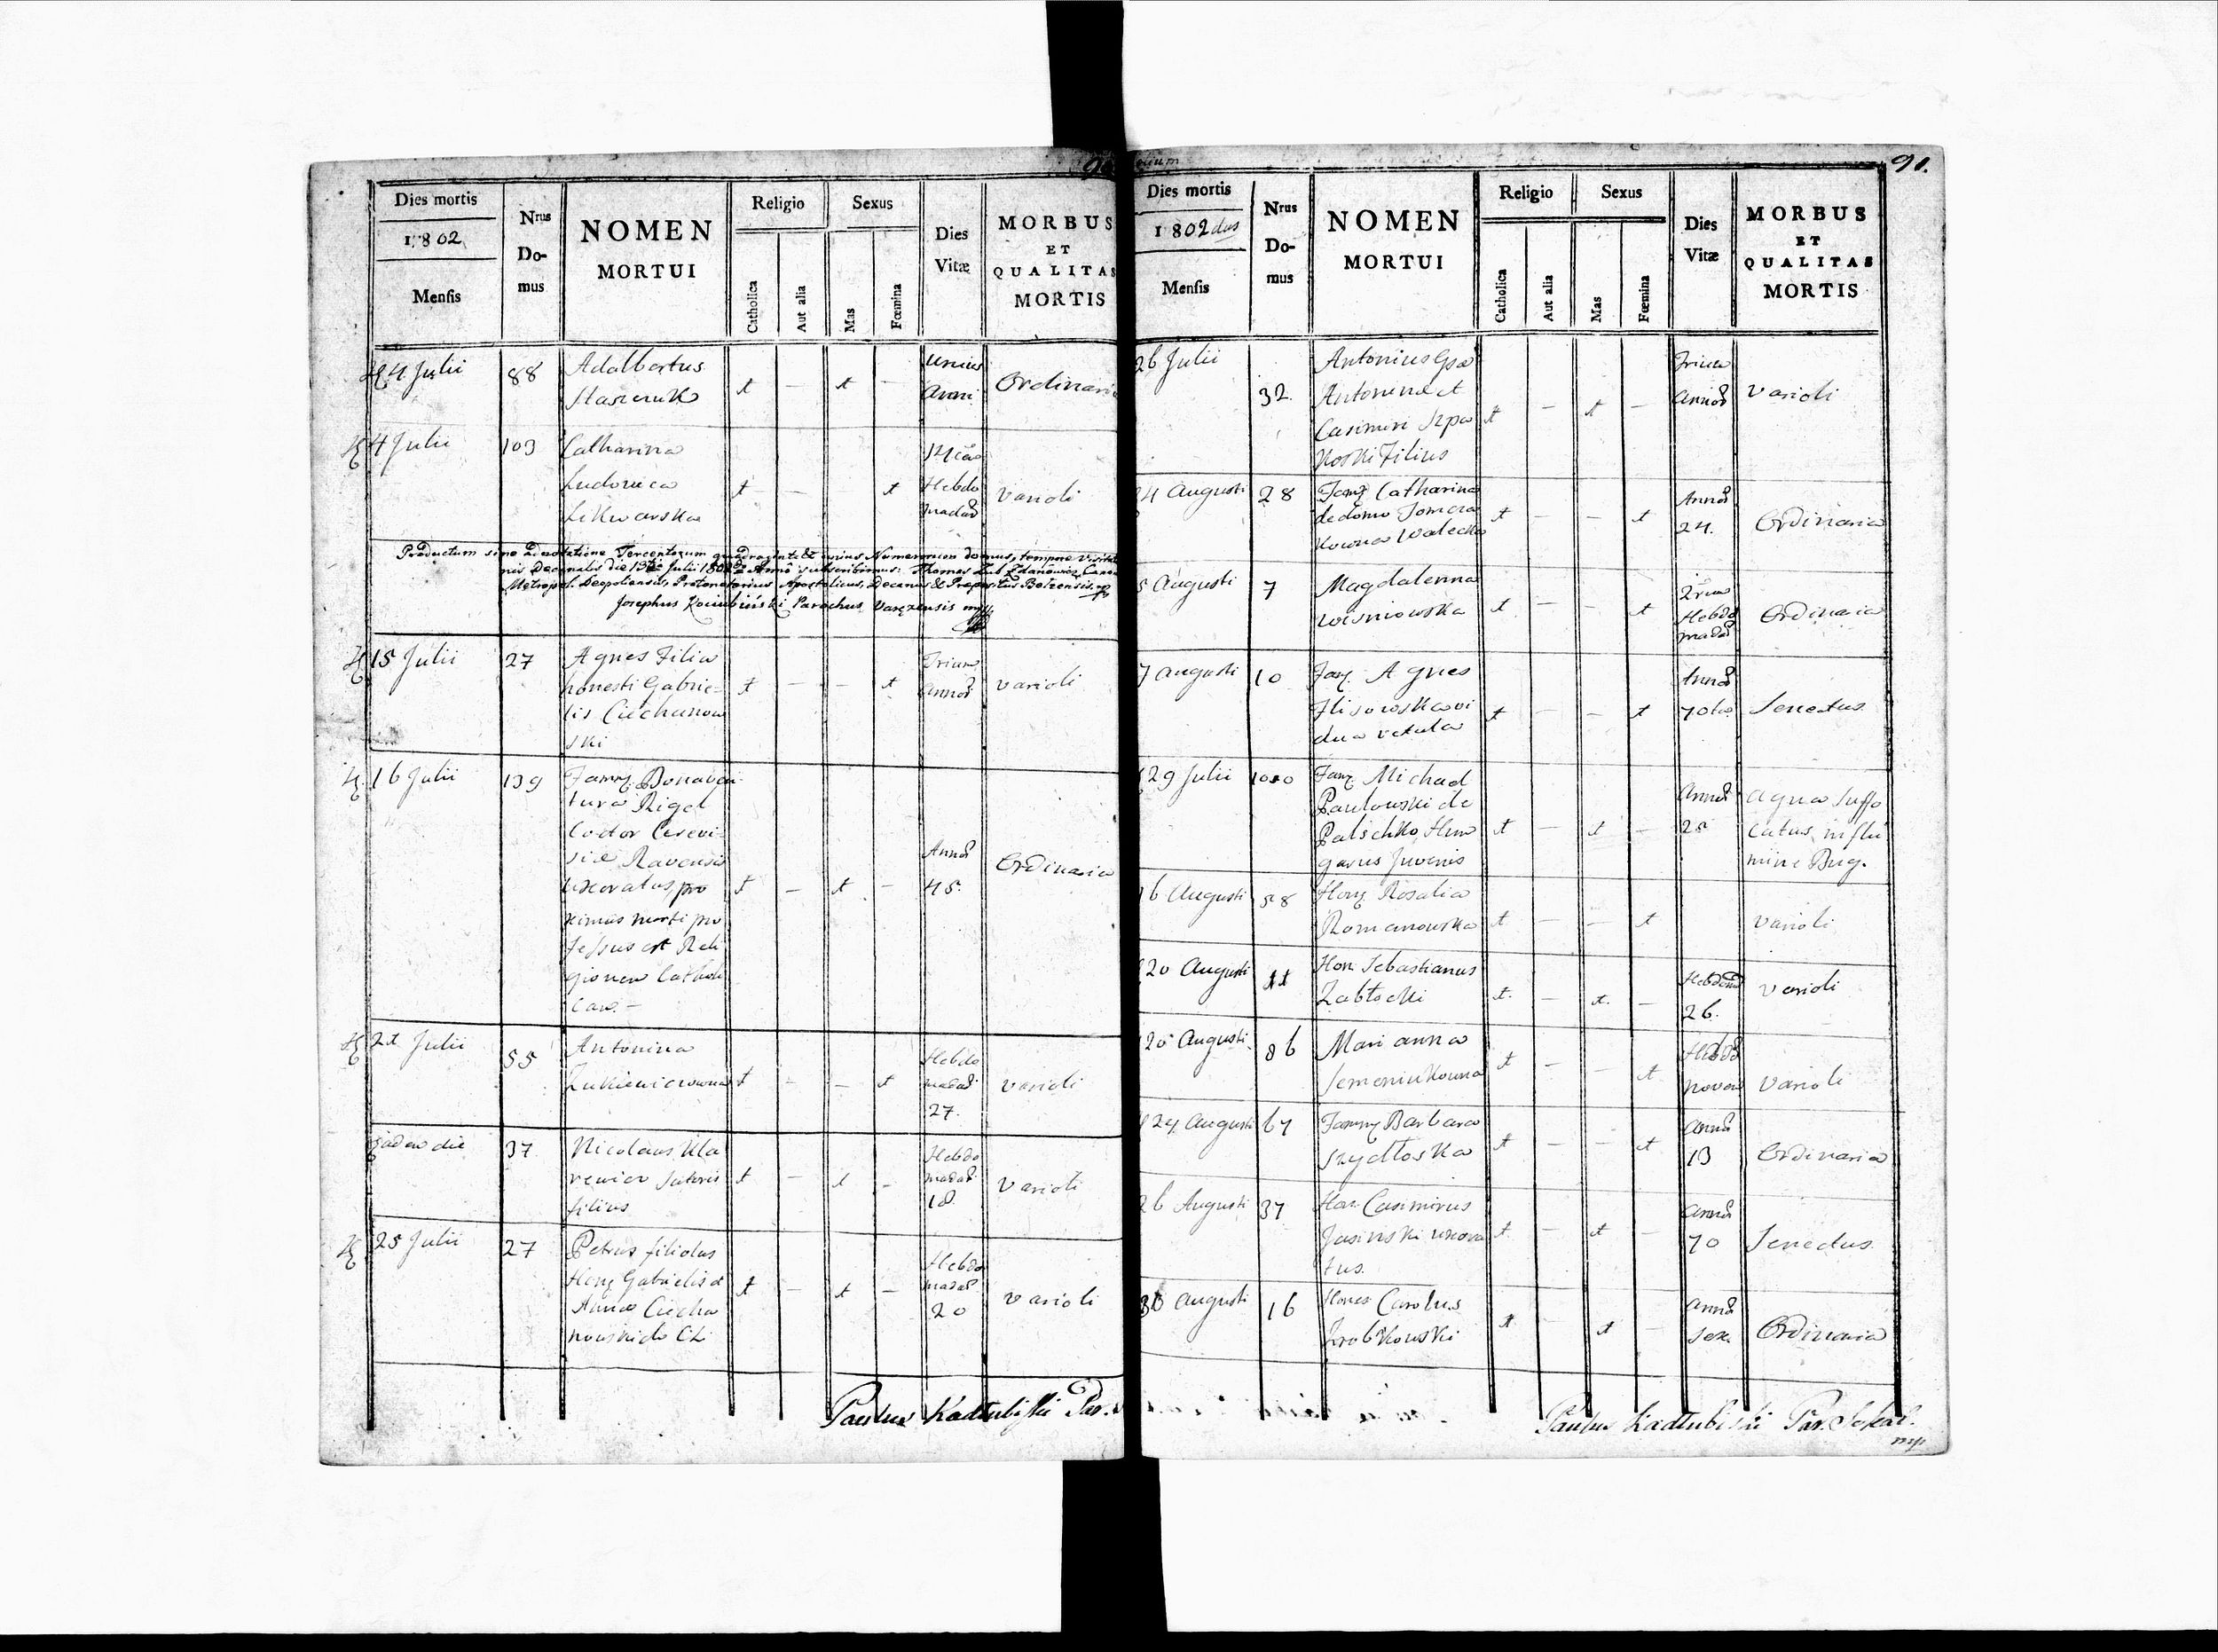 90
Dies mortis
1802
Mensis
Nrus
Do-
mus
NOMEN
MORTUI
Religio
Catholica
Aut alia
Sexus
Mas
Fœmina
Dies
Vitæ
MORBUS
ET
QUALITAS
MORTIS
4 Julii 88 Adalbertus
t — t — unius
Anni Ordinaria
4 Julii 109 Catharina
Ludovica
t — t
Hebdo
madar varioli
Productum sine adnotatione Tercentorum quadraginta et unius Numerorum domus, tempore Visitatio
nis Decanalis die 13tia Julii 1802do Anno subscribimus: Thomas
Metropol. Leopoliensis, Protonotarius Apostolicus, Decanus & Praepositus Belzensis mp
Josephus Kociubiński Parochus Varęzensis mp
15 Julii 27 Agnes Filia
honesti Gabrie-
lis Ciechanow
ski
t — — t Trium
Annor varioli
16 Julii 139 Famy Bonaven
tura Rigel
Coctor Cerevi-
siæ Ravensis
uxoratus pro
ximus morti pro
fessus est Reli
gionem Catholi
cam —
t — t — Annor
45. Ordinaria
21 Julii 55 Antonina
Zukiewiczowna
t — — t Hebdo
madar
27. varioli
Eadem die 37 Nicolaus Kla
rewicz Sutoris
filius
t — t — Hebdo
madar
18. varioli
25 Julii 27 Petrus filiolus
Hony Gabrielis et
Annæ Ciecha
nowski de CL
t — t — Hebdo
madar
20 varioli
Paulus Kadłubiski Par.
91.
Dies mortis
1802dus
Mensis
Nrus
Do-
mus
NOMEN
MORTUI
Religio
Catholica
Aut alia
Sexus
Mas
Fœmina
Dies
Vitæ
MORBUS
ET
QUALITAS
MORTIS
26 Julii 32. Antonius
Casimiri Szpa
koski Filius
t — t — Trium
Annor varioli
4 Augusti 28 Famy Catharina
de domo Tomcza
kowna Walecka
t — — t Annor
24. Ordinaria
5 Augusti 7 Magdalenna
wisniowska
t — — t
Hebdo
madar Ordinaria
7 Augusti 10 Famy Agnes
dua vetula
t — — t Annor
70ta Senectus
29 Julii Famy Michael
Pawlowski de
Palschko Hun
garus Juvenis
t — t — Annor
25 aqua suffo
catus in flu
mine Bug.
16 Augusti 58 Hony Rosalia
Romanowska
t — — t varioli
20 Augusti 11 Hon Sebastianus
Zabłocki
t — t — Hebdom
26. varioli
20 Augusti 86 Marianna
Semeniukowna
t — — t Hebdo
novem varioli
24 Augusti 67 Famy Barbara
Szydłoska
t — — t Annor
13 Ordinaria
26 Augusti 37 Hon Casimirus
Jasinski uxora
tus
t — t — Annor
70 Senectus
30 Augusti 16 Hones Carolus
Zrobkowski
t — t — Annor
sex Ordinaria
Paulus Kadłubiski Par. Sokal.
mp